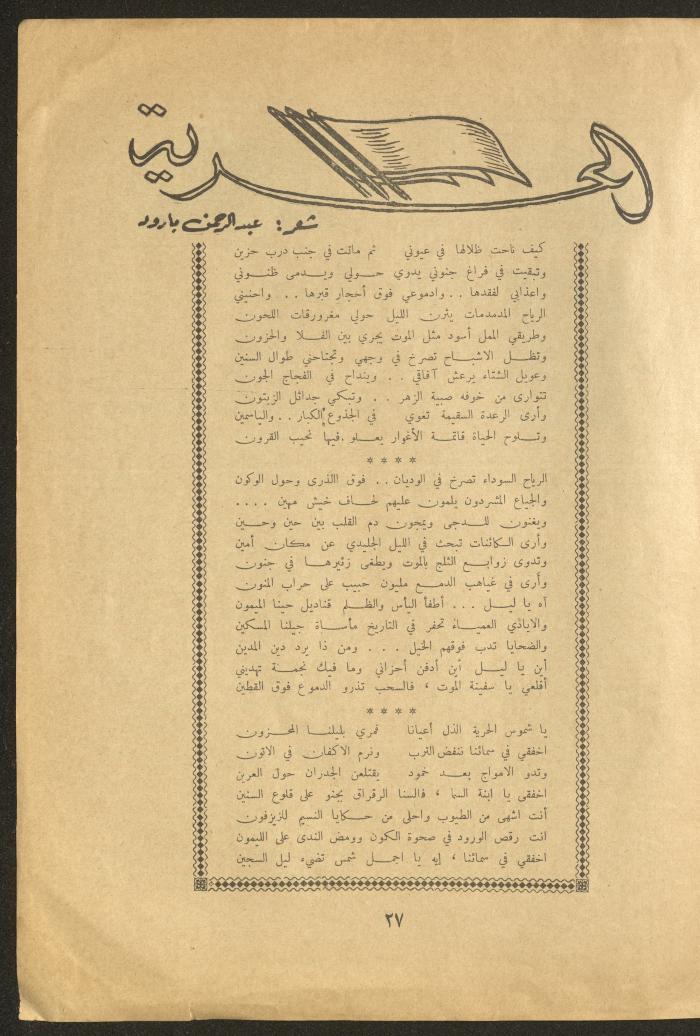 الحرية
شعر: عبدالرحمن بارود
كيف ناحت ظلالها في عيوني ثم ماتت في جنب درب حزين
وتبقيت في فراغ جنوني يدوي حولي ويدمى ظنوني
واعذابي لفقدها .. وادموعي فوق أحجار قبرها .. واحنيني
الرياح المدمدمات يثرن الليل حولي مغرورقات اللحون
وطريقي الممل أسود مثل الموت يجري بين الفلا والحزون
وتظل الاشباح تصرخ في وجهي وتجتاحني طوال السنين
وعويل الشتاء يرعش آفاقي .. وينداح في الفجاج الجون
تتوارى من خوفه صبية الزهر .. وتبكي جدائل الزيتون
وأرى الرعدة السقيمة تعوي في الجذوع الكبار .. والياسمين
وتلوح الحياة قاتمة الأغوار يعلو فيها نحيب القرون
* * * *
الرياح السوداء تصرخ في الوديان .. فوق الذرى وحول الوكون
والجياع المشردون يلمون عليهم لحاف خيش مهين ....
ويغنون للدجى ويمجون دم القلب بين حين وحين
وأرى الكائنات تبحث في الليل الجليدي عن مكان أمين
وتدوى زوابع الثلج بالموت ويطغى زئيرها في جنون
وأرى في غياهب الدمع مليون حبيب على حراب المنون
آه يا ليل ... أطفأ اليأس والظلم قناديل حينا الميمون
والايادي العمياء تحفر في التاريخ مأساة جيلنا المسكين
والضحايا تدب فوقهم الخيل ... ومن ذا يرد دين المدين
أين يا ليل أين أدفن أحزاني وما فيك نجمة تهديني
أقلعي يا سفينة الموت ، فالسحب تذرو الدموع فوق القطين
* * * *
يا شموس الحرية الذل أعيانا فمري بليلنا المحزون
اخفقي في سمائنا ننفض الترب ونرم الاكفان في الاتون
وتدو الامواج بعد خمود يقتلعن الجدران حول العرين
اخفقي يا ابنة السما ، فالسنا الرقراق يحنو على قلوع السنين
أنت اشهى من الطيوب واحلى من حكايا النسيم للزيزفون
انت رقص الورود في صحوة الكون وومض الندى على الليمون
اخفقي في سمائنا ، إيه يا اجمل شمس تضيء ليل السجين
٢٧